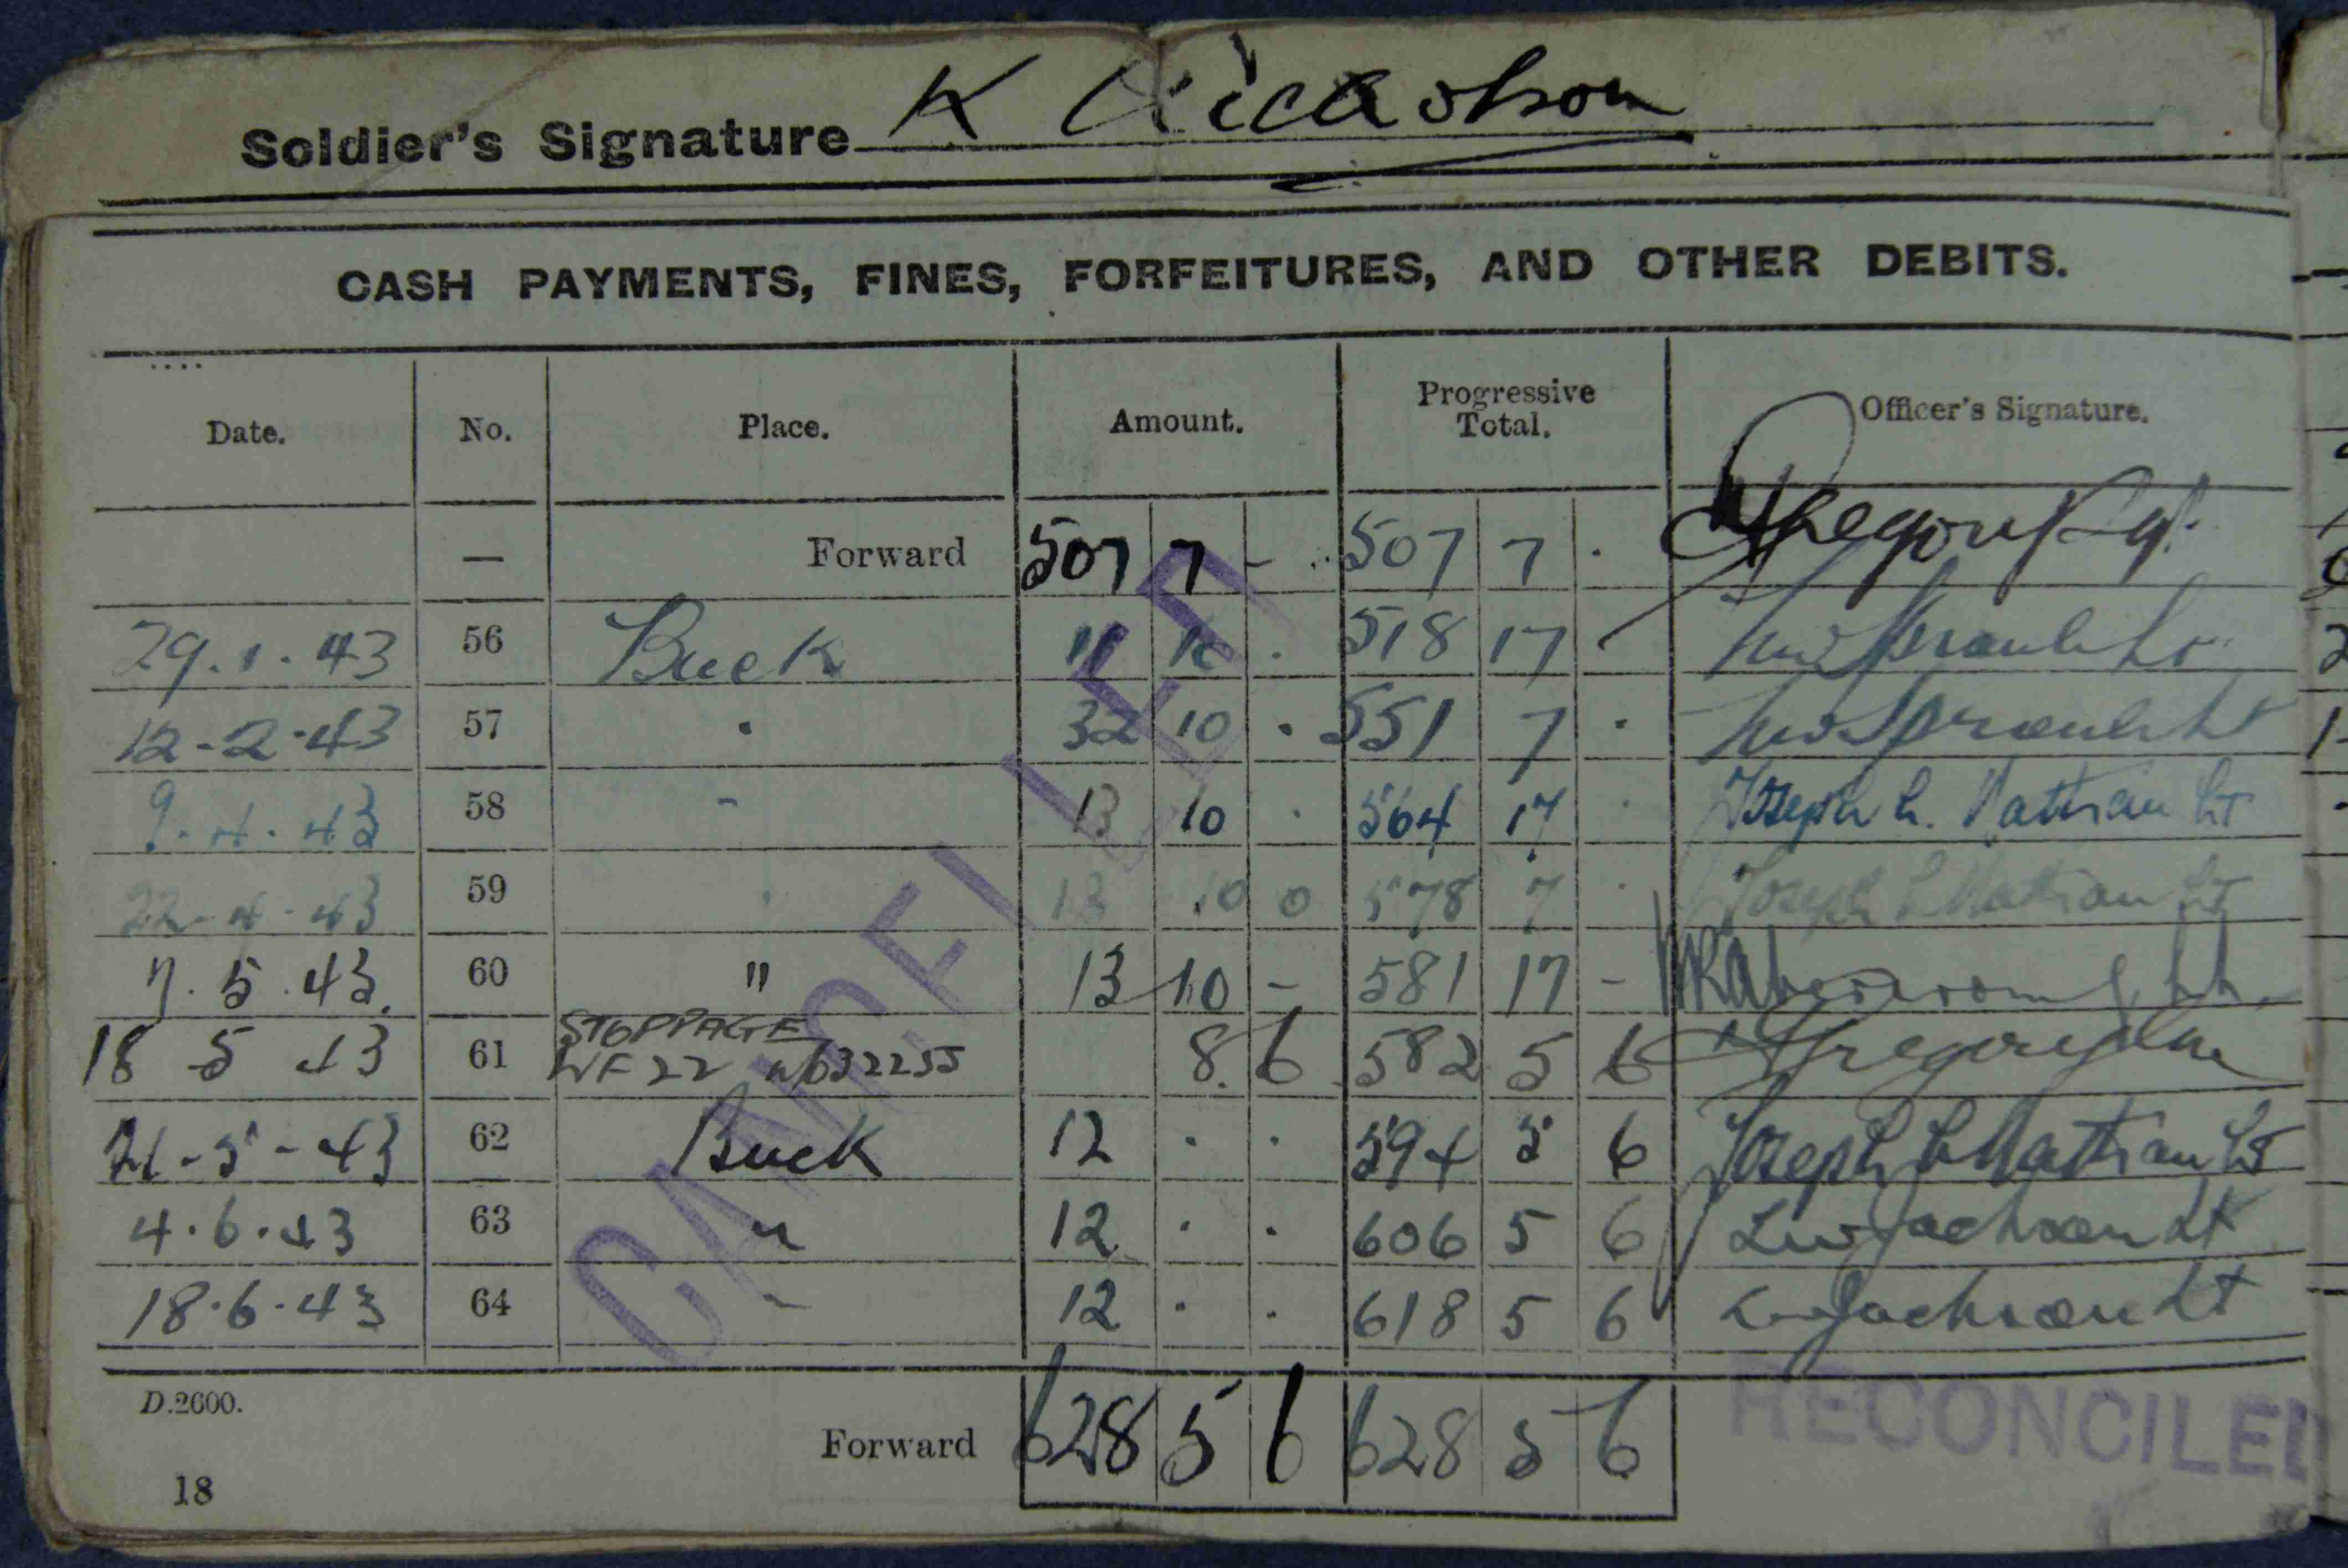 Soldier's Signature K Nicholson
CASH PAYMENTS, FINES, FORFEITURES, AND OTHER DEBITS.
Date. No. Place. Amount. Progressive Total. Officer's Signature.
— Forward 507 7 - 507 7 .
29.1.43 56 Buck 11 10 . 518 17 -
12-2-43 57 " 32 10 . 551 7 .
9.4.43 58 " 13 10 . 564 17 . Joseph L. Lt
22-4-43 59 " 13 10 0 578 7 . Joseph L Lt
7.5.43. 60 " 13 10 - 581 17 -
18 5 43 61 STOPPAGE WF 22 8. 6 582 5 6 Gregory
21-5-43 62 Buck 12 . . 594 5 6 Joseph L Lt
4.6.43 63 " 12 . . 606 5 6 Jackson Lt
18.6.43 64 " 12 . . 618 5 6 Jackson Lt
CANCELLED
D.2600.
Forward 628 5 6 628 5 6
RECONCILED
18